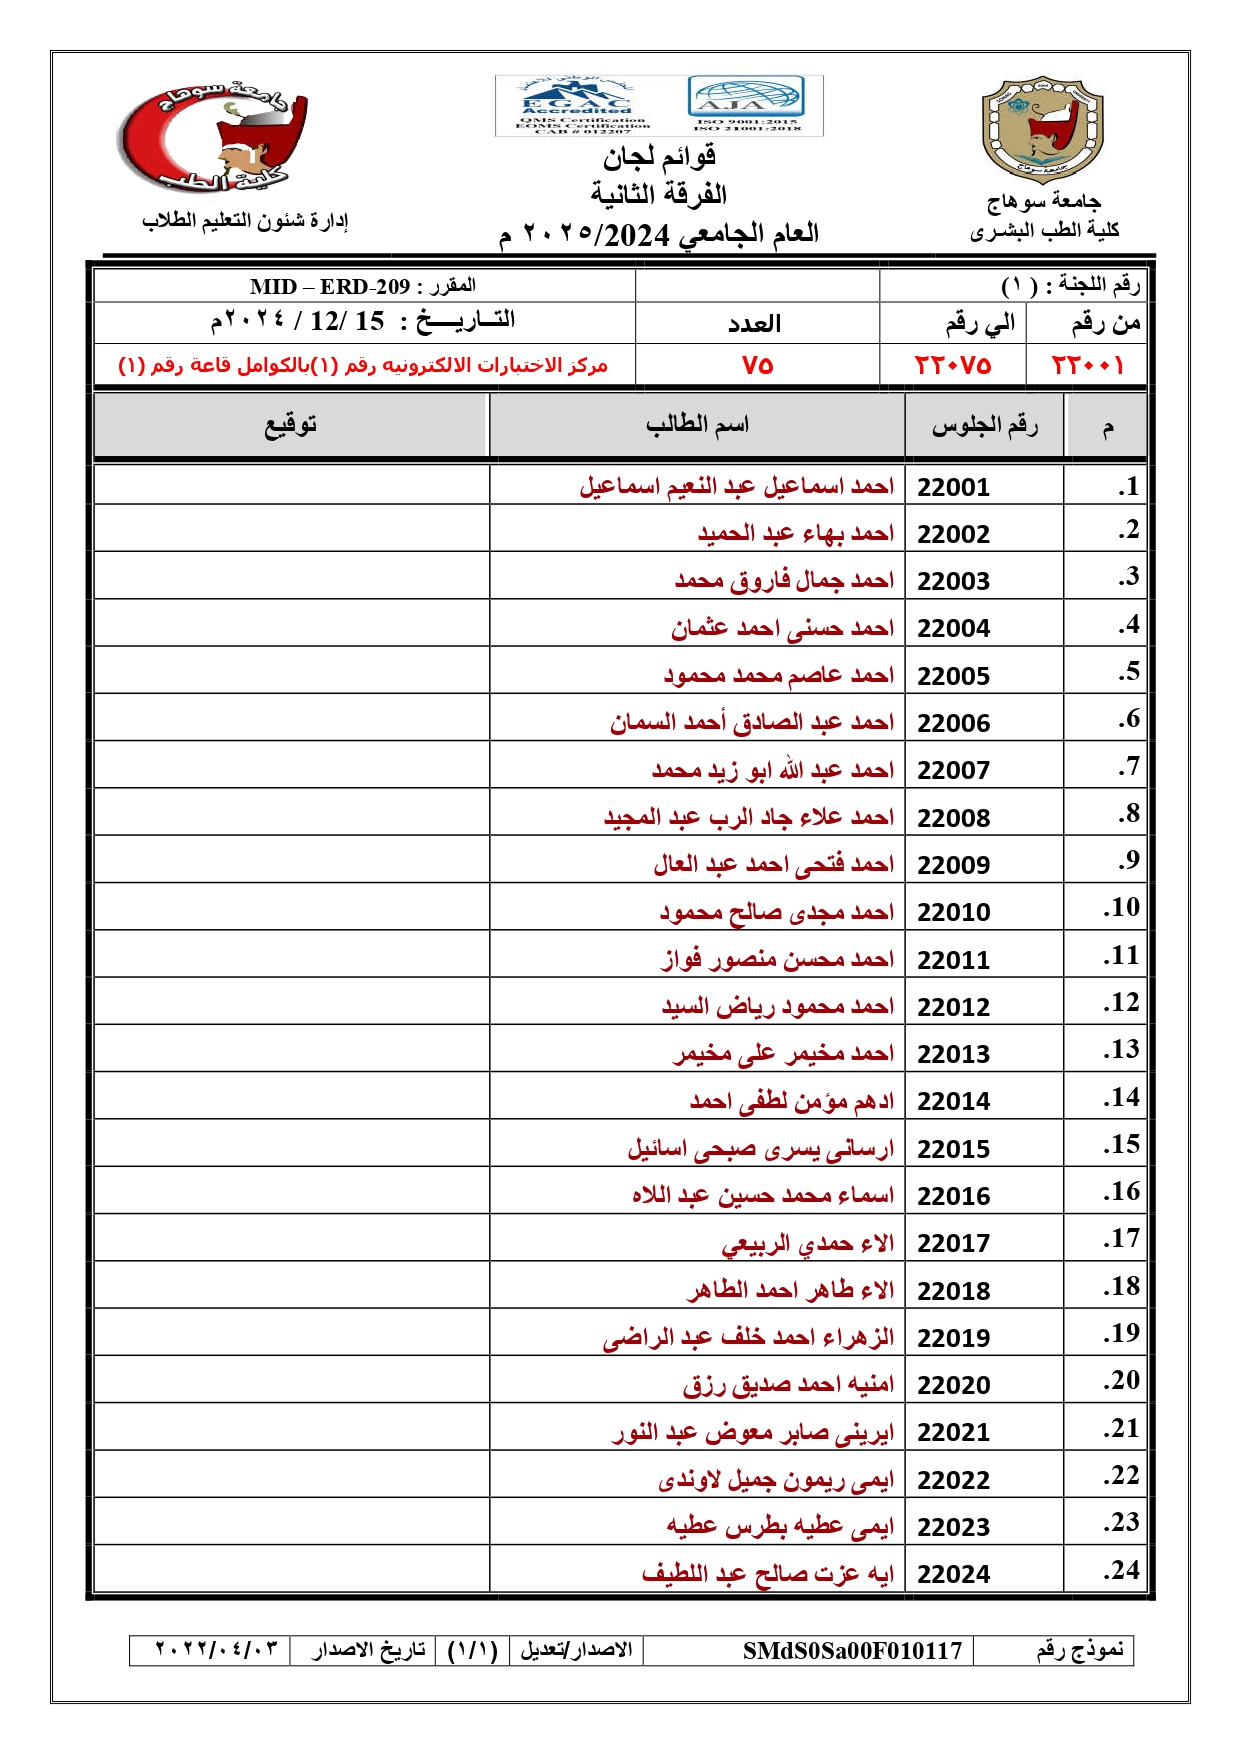 جامعة سوهاج
كلية الطب
إدارة شئون التعليم الطلاب
EGAC
Accredited
QMS Certification
EOMS Certification
CAB # 012207
AJA
ISO 9001:2015
ISO 21001:2018
قوائم لجان
الفرقة الثانية
العام الجامعي 2024/٢٠٢٥ م
جامعة سوهاج
جامعة سوهاج
كلية الطب البشرى
رقم اللجنة : ( ١)
المقرر : MID – ERD-209
من رقم الي رقم العدد التــاريــــخ : 15 /12 / ٢٠٢٤م
٢٢٠٠١ ٢٢٠٧٥ ٧٥ مركز الاختبارات الالكترونيه رقم (١)بالكوامل قاعة رقم (١)
م رقم الجلوس اسم الطالب توقيع
1. 22001 احمد اسماعيل عبد النعيم اسماعيل
2. 22002 احمد بهاء عبد الحميد
3. 22003 احمد جمال فاروق محمد
4. 22004 احمد حسنى احمد عثمان
5. 22005 احمد عاصم محمد محمود
6. 22006 احمد عبد الصادق أحمد السمان
7. 22007 احمد عبد الله ابو زيد محمد
8. 22008 احمد علاء جاد الرب عبد المجيد
9. 22009 احمد فتحى احمد عبد العال
10. 22010 احمد مجدى صالح محمود
11. 22011 احمد محسن منصور فواز
12. 22012 احمد محمود رياض السيد
13. 22013 احمد مخيمر على مخيمر
14. 22014 ادهم مؤمن لطفى احمد
15. 22015 ارسانى يسرى صبحى اسائيل
16. 22016 اسماء محمد حسين عبد اللاه
17. 22017 الاء حمدي الربيعي
18. 22018 الاء طاهر احمد الطاهر
19. 22019 الزهراء احمد خلف عبد الراضى
20. 22020 امنيه احمد صديق رزق
21. 22021 ايرينى صابر معوض عبد النور
22. 22022 ايمى ريمون جميل لاوندى
23. 22023 ايمى عطيه بطرس عطيه
24. 22024 ايه عزت صالح عبد اللطيف
نموذج رقم SMdS0Sa00F010117 الاصدار/تعديل (١/١) تاريخ الاصدار ٢٠٢٢/٠٤/٠٣